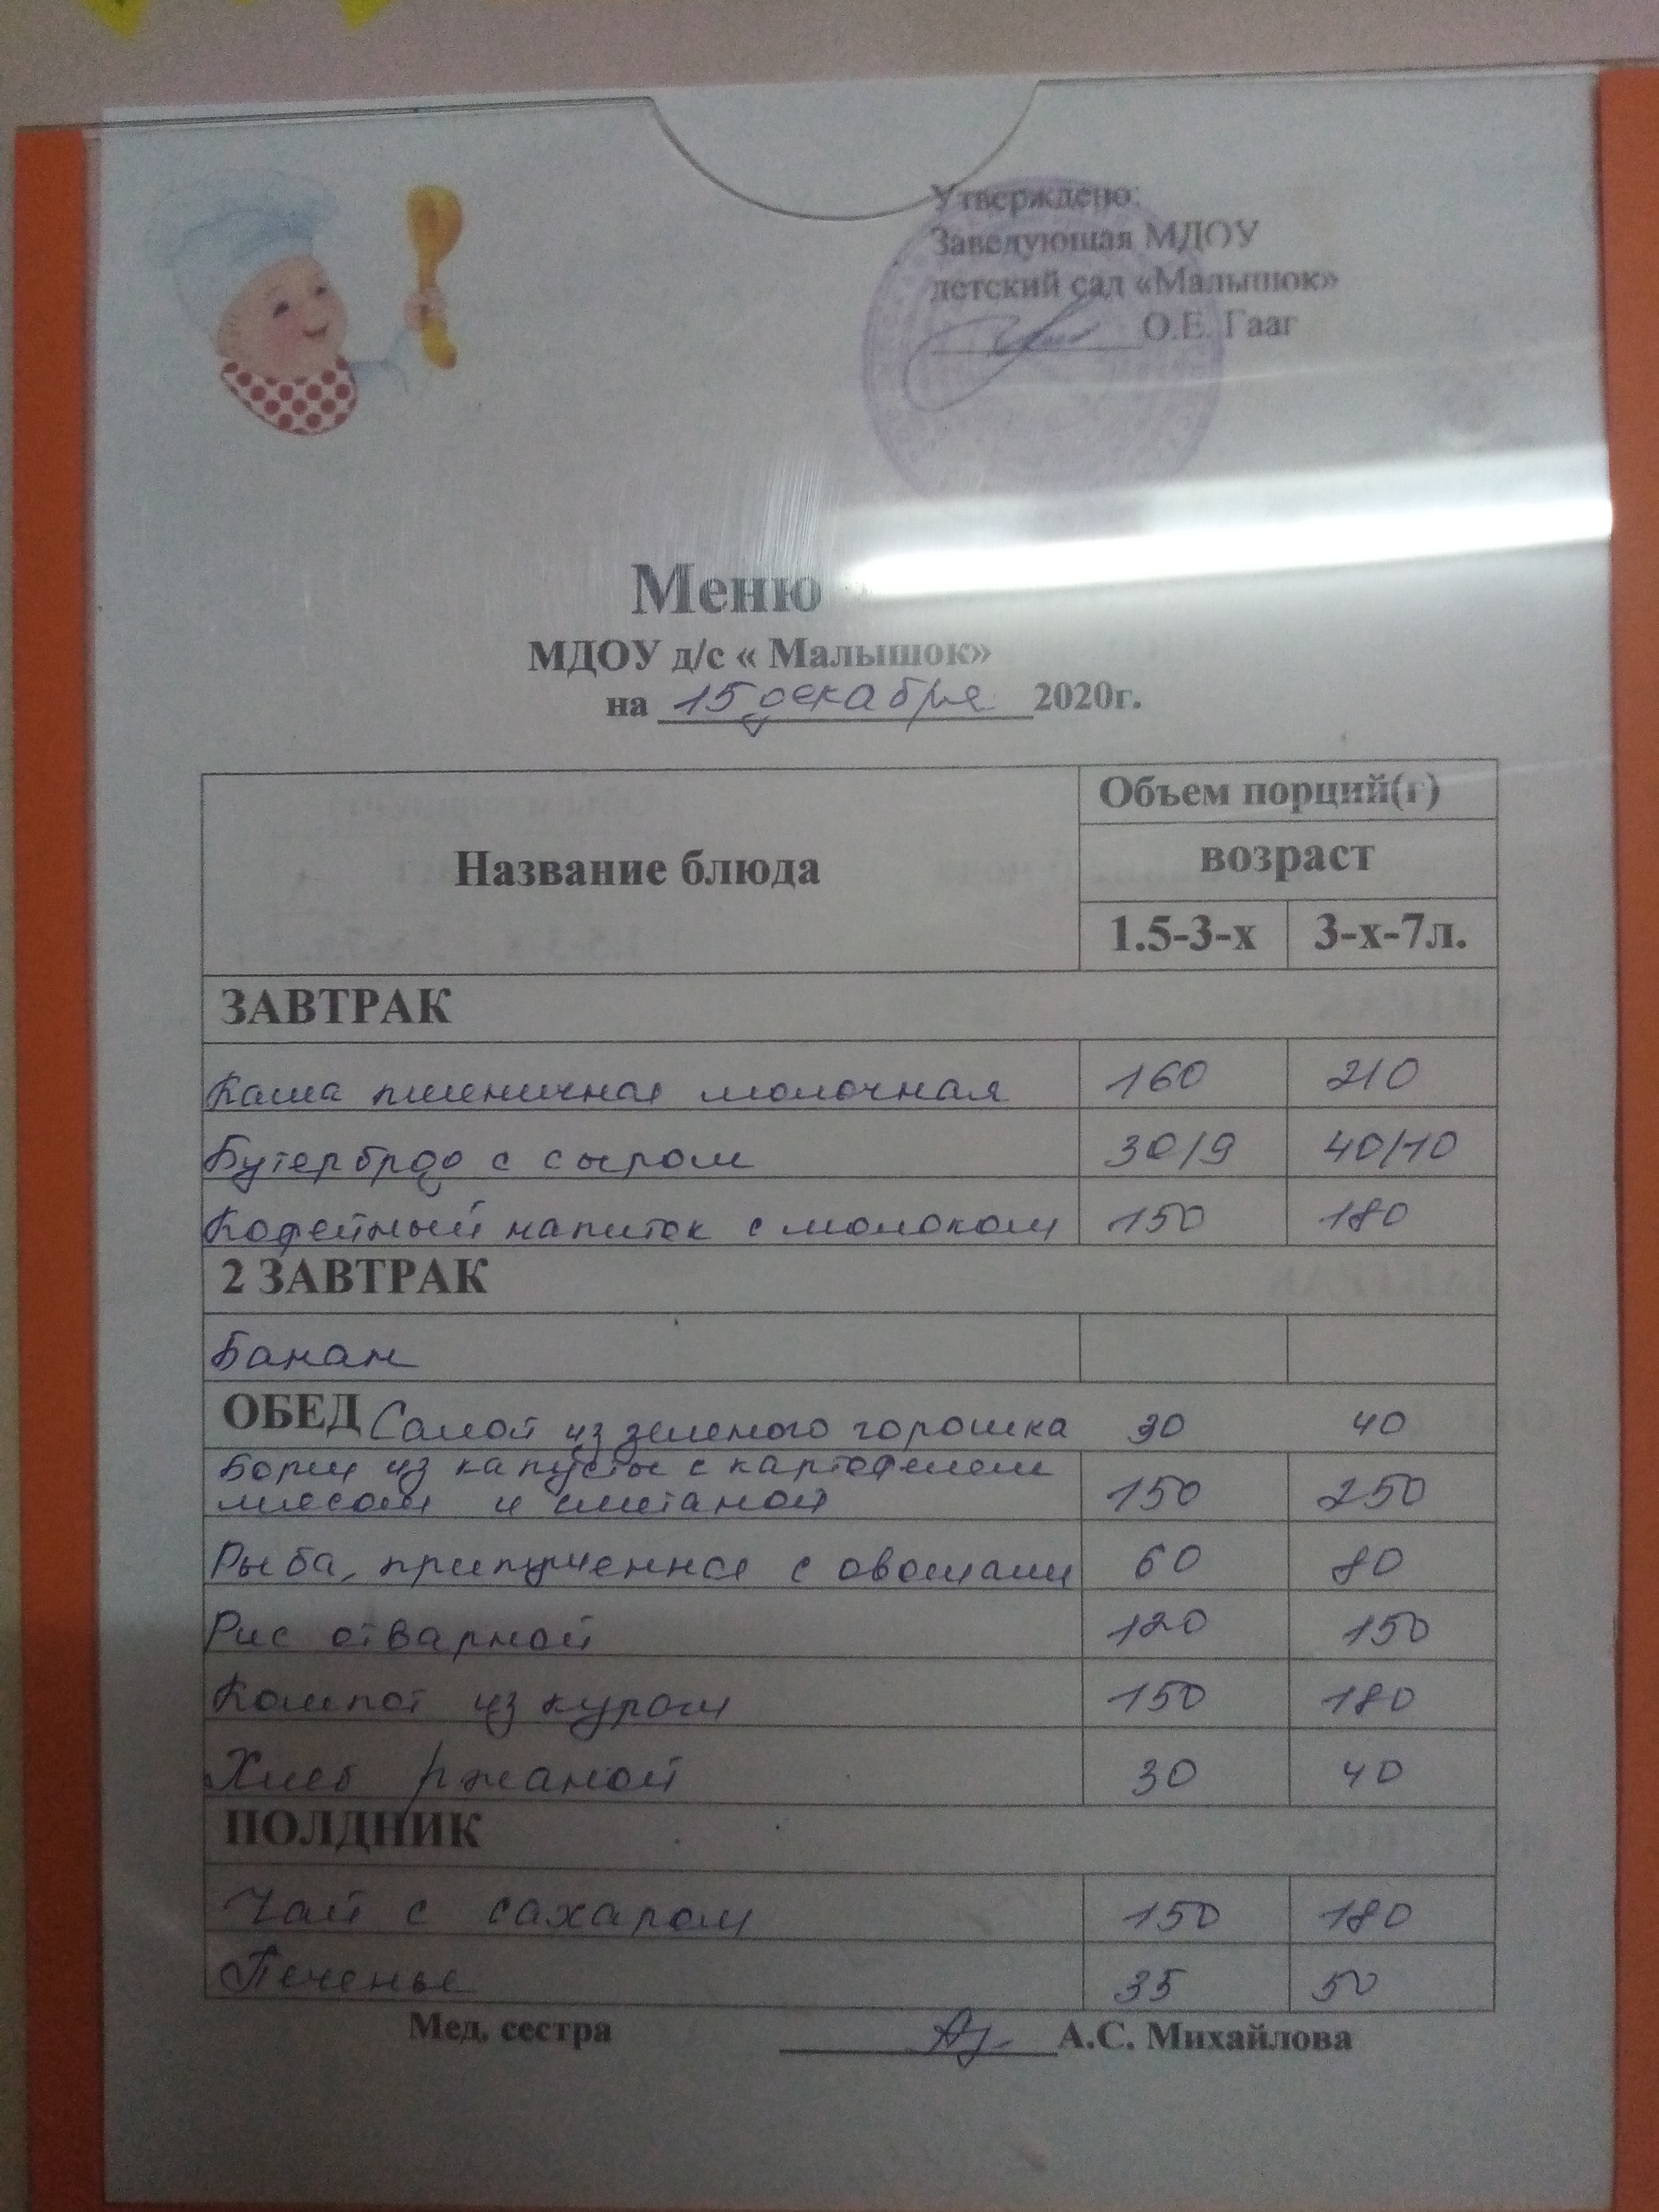 Утверждено:
Заведующая МДОУ
детский сад «Малышок»
О.Е. Гааг
Меню
МДОУ д/с « Малышок»
на 15 декабря 2020г.
Название блюда
Объем порций(г)
возраст
1.5-3-х 3-х-7л.
ЗАВТРАК
Каша пшеничная молочная 160 210
Бутерброд с сыром 30/9 40/10
Кофейный напиток с молоком 150 180
2 ЗАВТРАК
Банан
ОБЕД Салат из зеленого горошка 30 40
Борщ из капусты с картофелем
мясом и сметаной 150 250
Рыба, припущенная с овощами 60 80
Рис отварной 120 150
Компот из кураги 150 180
Хлеб ржаной 30 40
ПОЛДНИК
Чай с сахаром 150 180
Печенье 35 50
Мед. сестра А.С. Михайлова